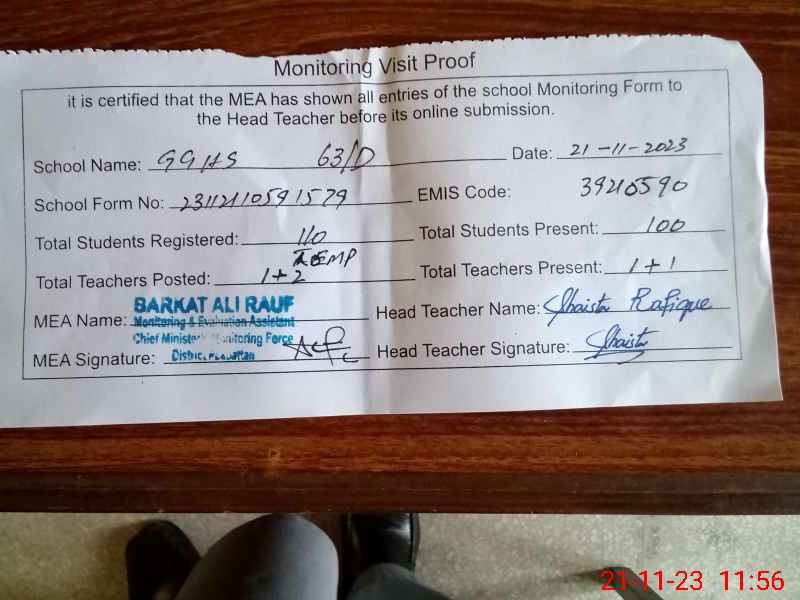 Monitoring Visit Proof
it is certified that the MEA has shown all entries of the school Monitoring Form to
the Head Teacher before its online submission.
School Name: GGHS 63/D Date: 21-11-2023
School Form No: EMIS Code: 39210590
Total Students Registered: 110 Total Students Present: 100
Total Teachers Posted: 1+2 Total Teachers Present: 1+1
MEA Name: BARKAT ALI RAUF Head Teacher Name: Shaista Rafique
Monitoring & Evaluation Assistant
Chief Minister Monitoring Force
MEA Signature: District Head Teacher Signature: Shaista
21-11-23 11:56